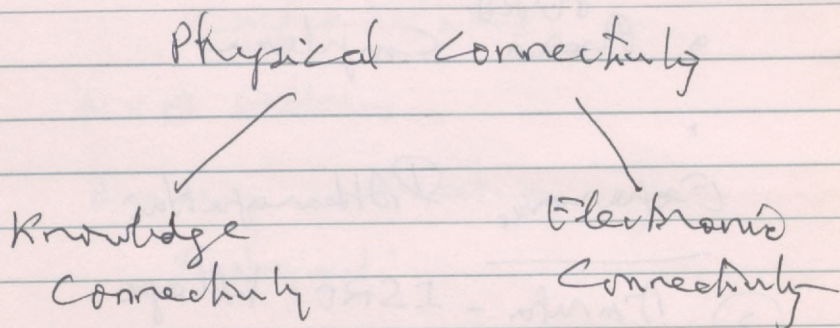 Physical Connectivity
Knowledge
Connectivity
Electronic
Connectivity